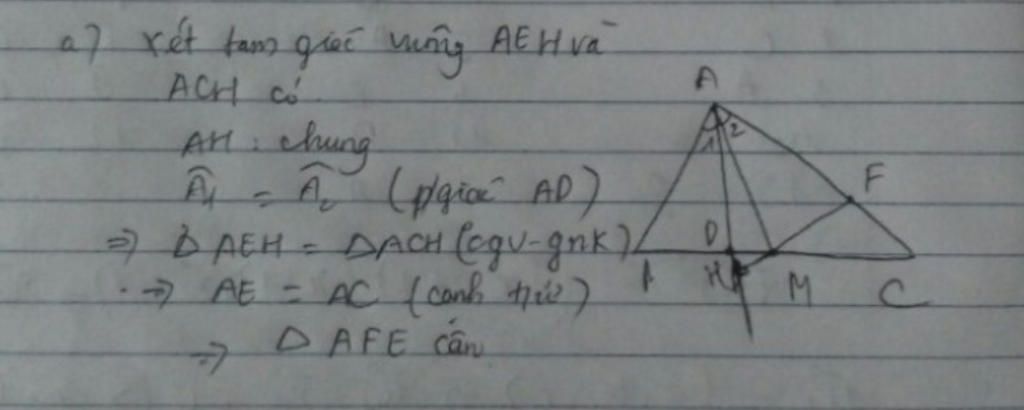 a) Xét tam giác vuông AEH và
ACH có
AH : chung
Â1 = Â2 (p/giác AD)
=> Δ AEH = Δ ACH (cgv-gnk)
=> AE = AC (cạnh t/ứ)
=> Δ AFE cân
A
1 2
F
D
H
M
C